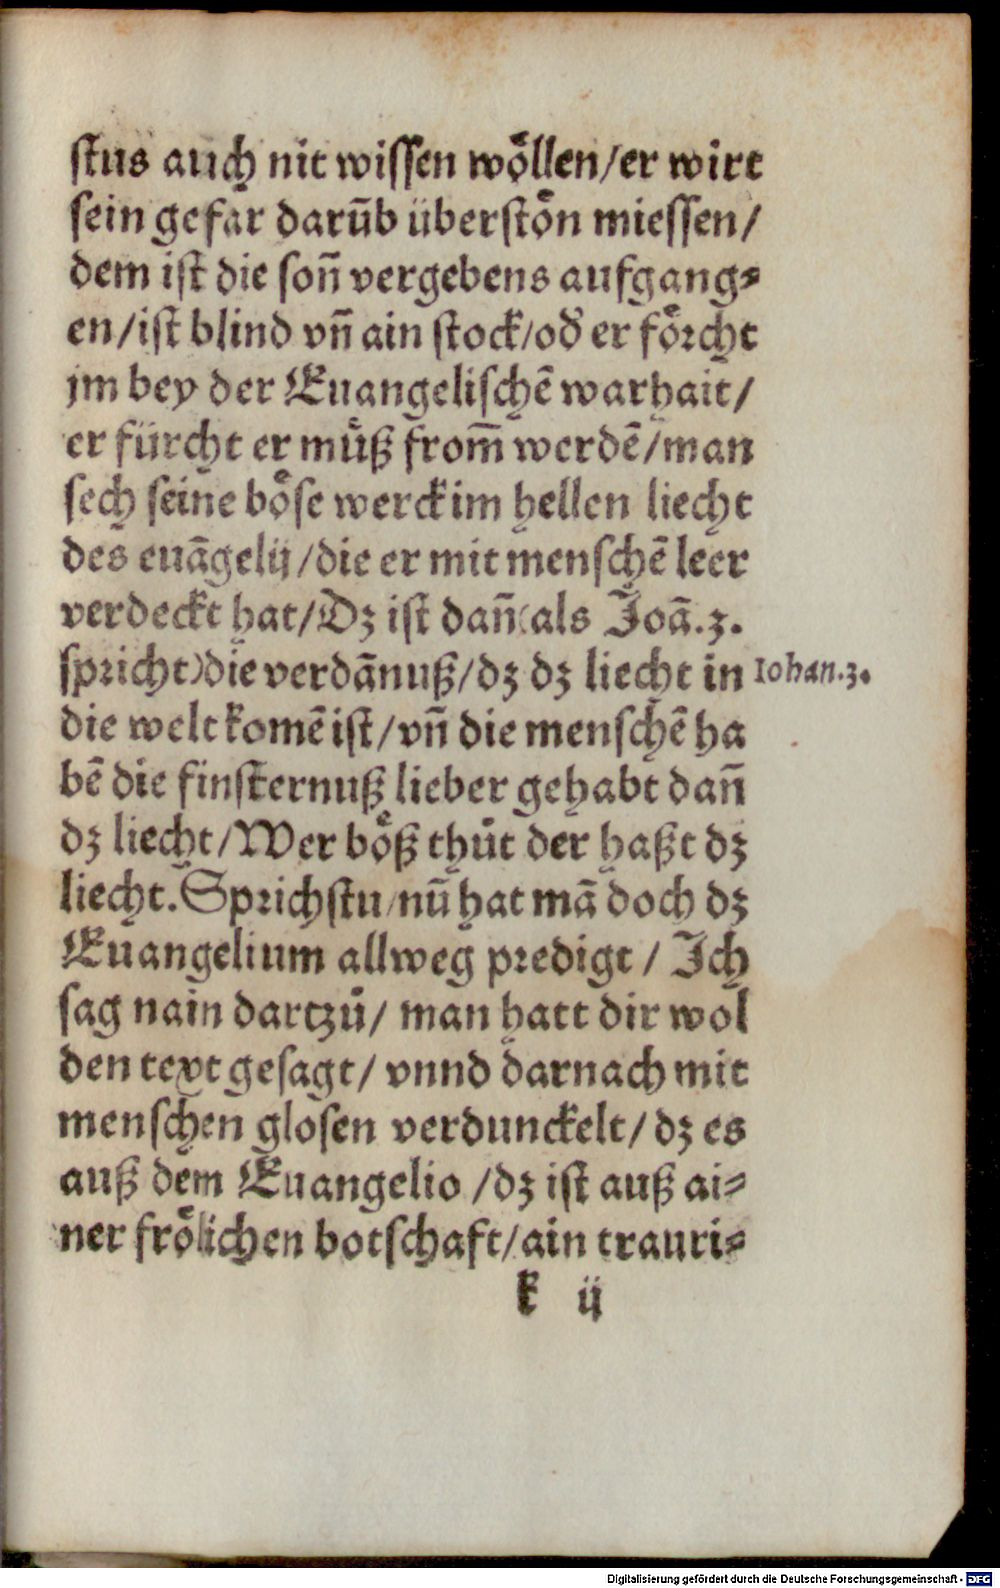 stus auch nit wissen woͤllen/er wirt
sein gefar darūb überstoͤn miessen/
dem ist die soñ vergebens aufgang⸗
en/ist blind vñ ain stock/oď er foͤrcht
jm bey der Euangelischē warhait/
er fürcht er muͤß from̃ werdē/man
sech seine boͤse werck im hellen liecht
des euāgelij/die er mit menschē leer
verdeckt hat/Dz ist dañ(als Joā.3.
spricht)die verdānuß/dz dz liecht in Iohan.3.
die welt komē ist/vñ die menschē ha
bē die finsternuß lieber gehabt dañ
dz liecht/Wer boͤß thuͦt der haßt dz
liecht.Sprichstu/nū hat mā doch dz
Euangelium allweg predigt/ Ich
sag nain dartzuͦ/ man hatt dir wol
den text gesagt/ vnnd darnach mit
menschen glosen verdunckelt/ dz es
auß dem Euangelio /dz ist auß ai⸗
ner froͤlichen botschaft/ain trauri⸗
k ij
Digitalisierung gefördert durch die Deutsche Forschungsgemeinschaft - DFG